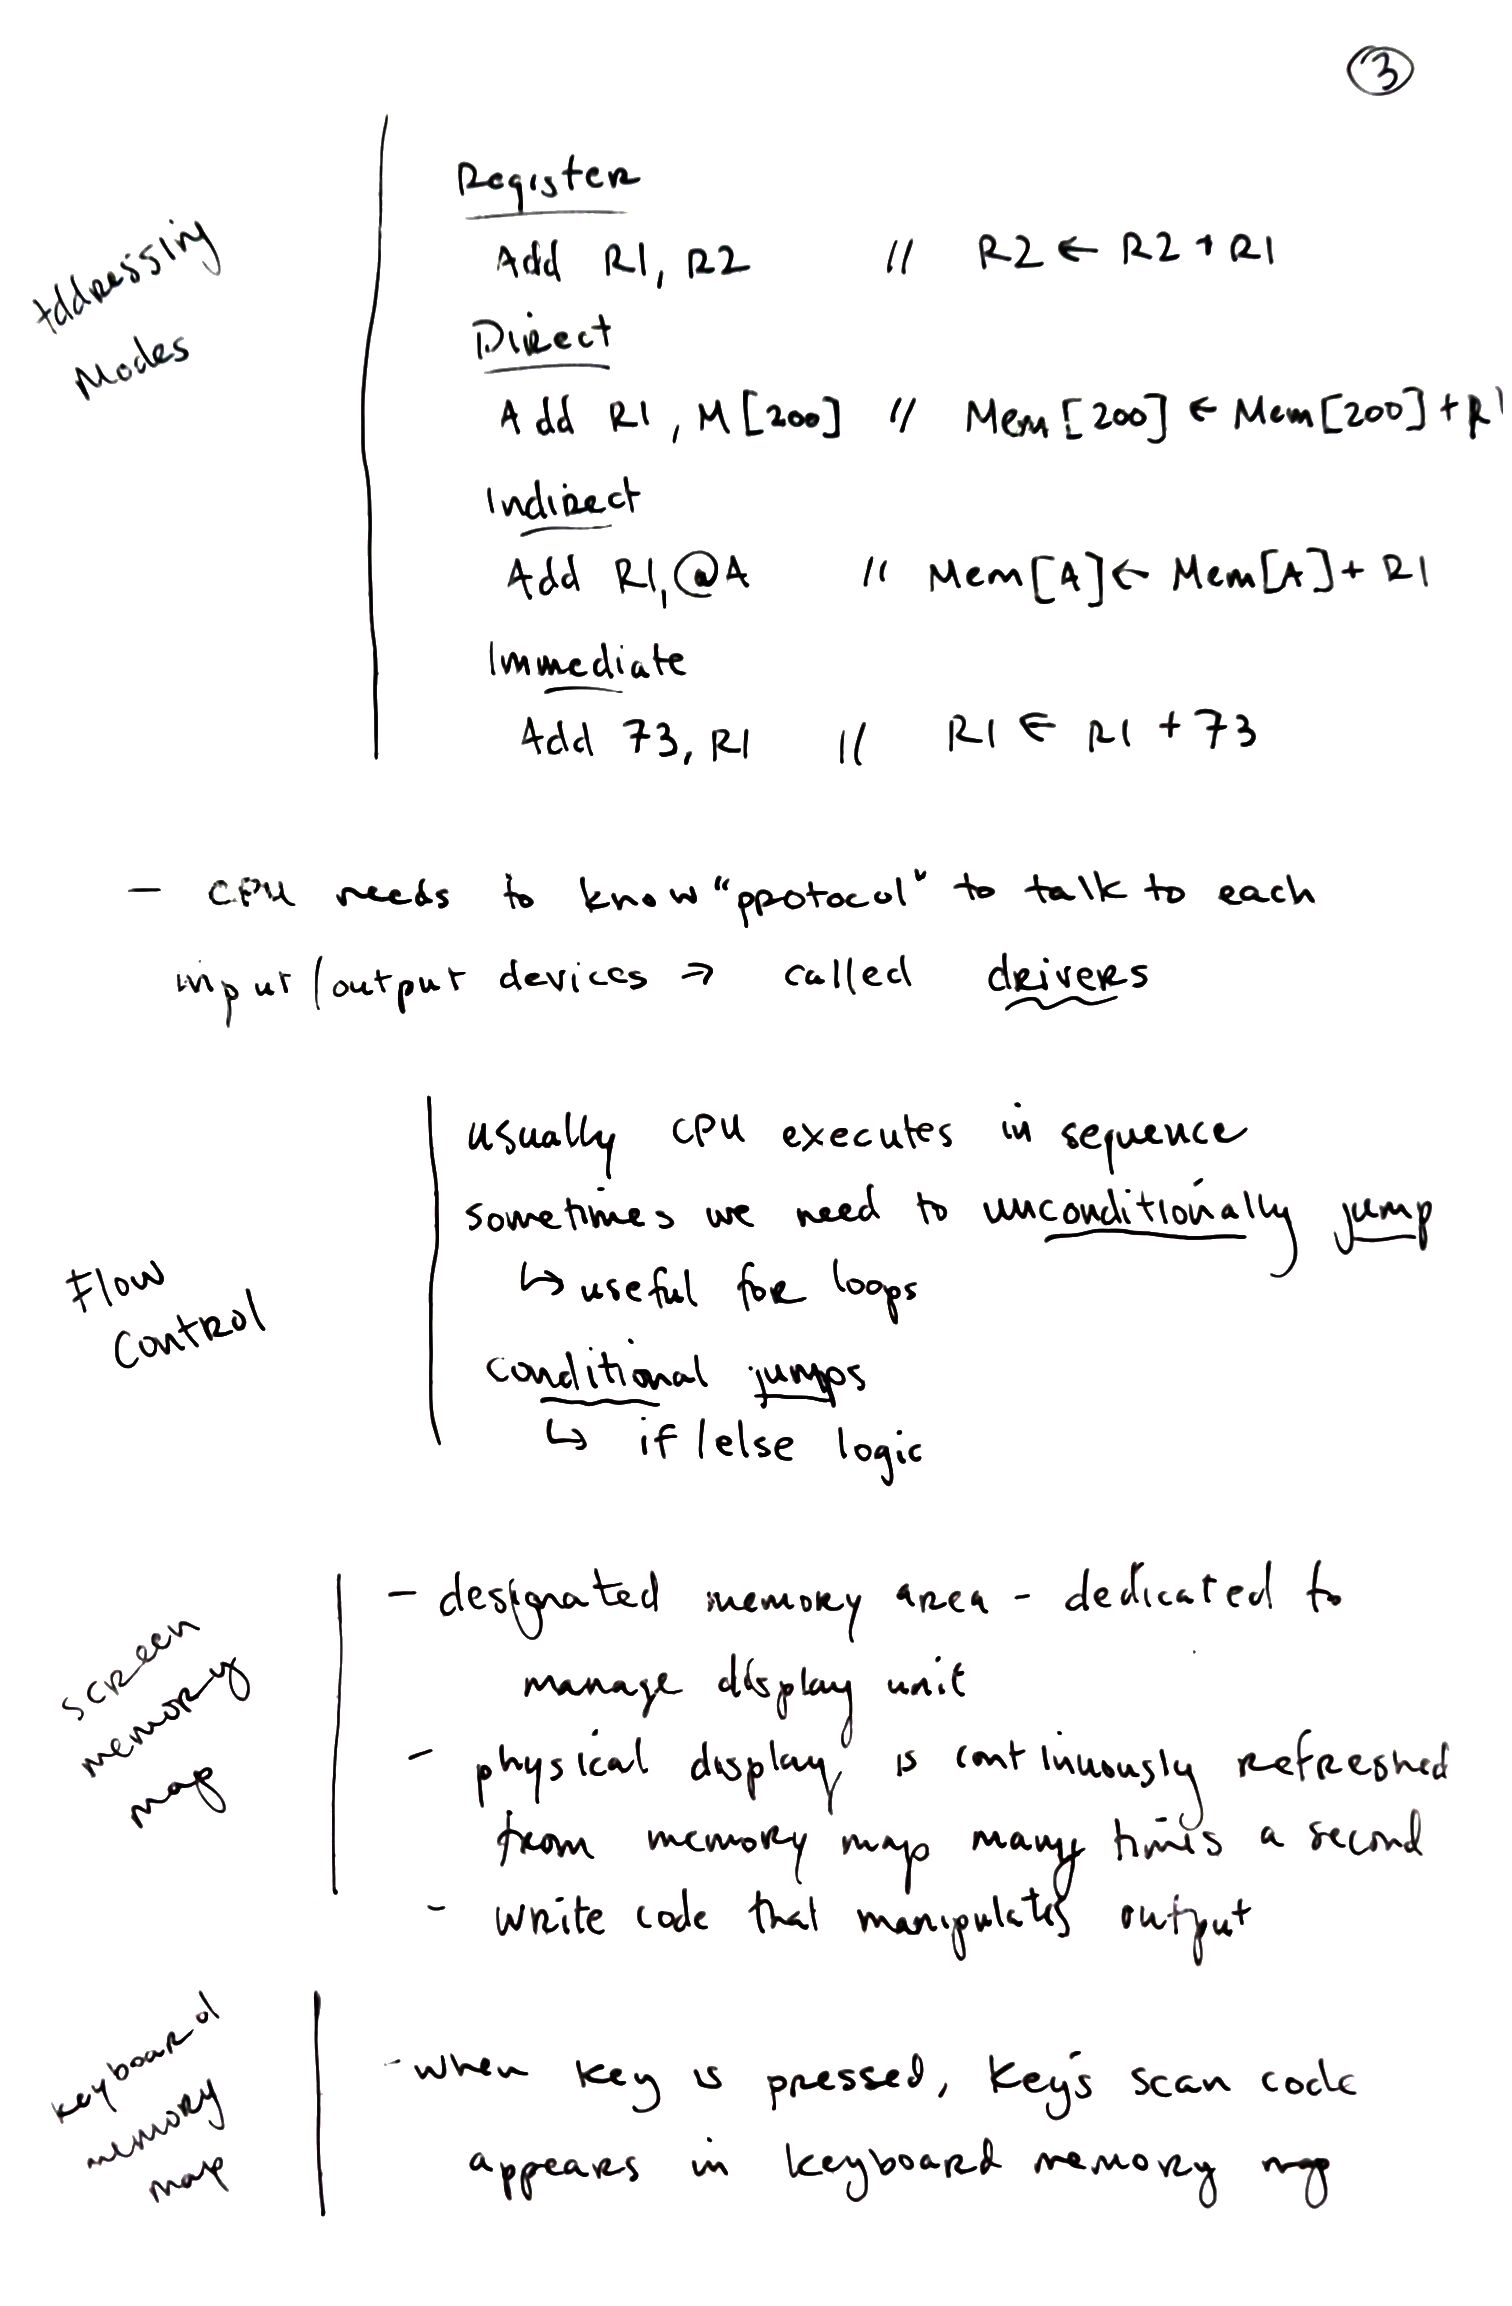 3
Addressing
Modes
Register
Add R1, R2 // R2 ← R2 + R1
Direct
Add R1, M[200] // Mem[200] ← Mem[200] + R1
Indirect
Add R1, @A // Mem[A] ← Mem[A] + R1
Immediate
Add 73, R1 // R1 ← R1 + 73
- CPU needs to know "protocol" to talk to each
input/output devices → called drivers
Flow
Control
usually CPU executes in sequence
sometimes we need to unconditionally jump
↳ useful for loops
conditional jumps
↳ if/else logic
screen
memory
map
- designated memory area - dedicated to
manage display unit
- physical display is continuously refreshed
from memory map many times a second
- write code that manipulates output
keyboard
memory
map
- when key is pressed, key's scan code
appears in keyboard memory map